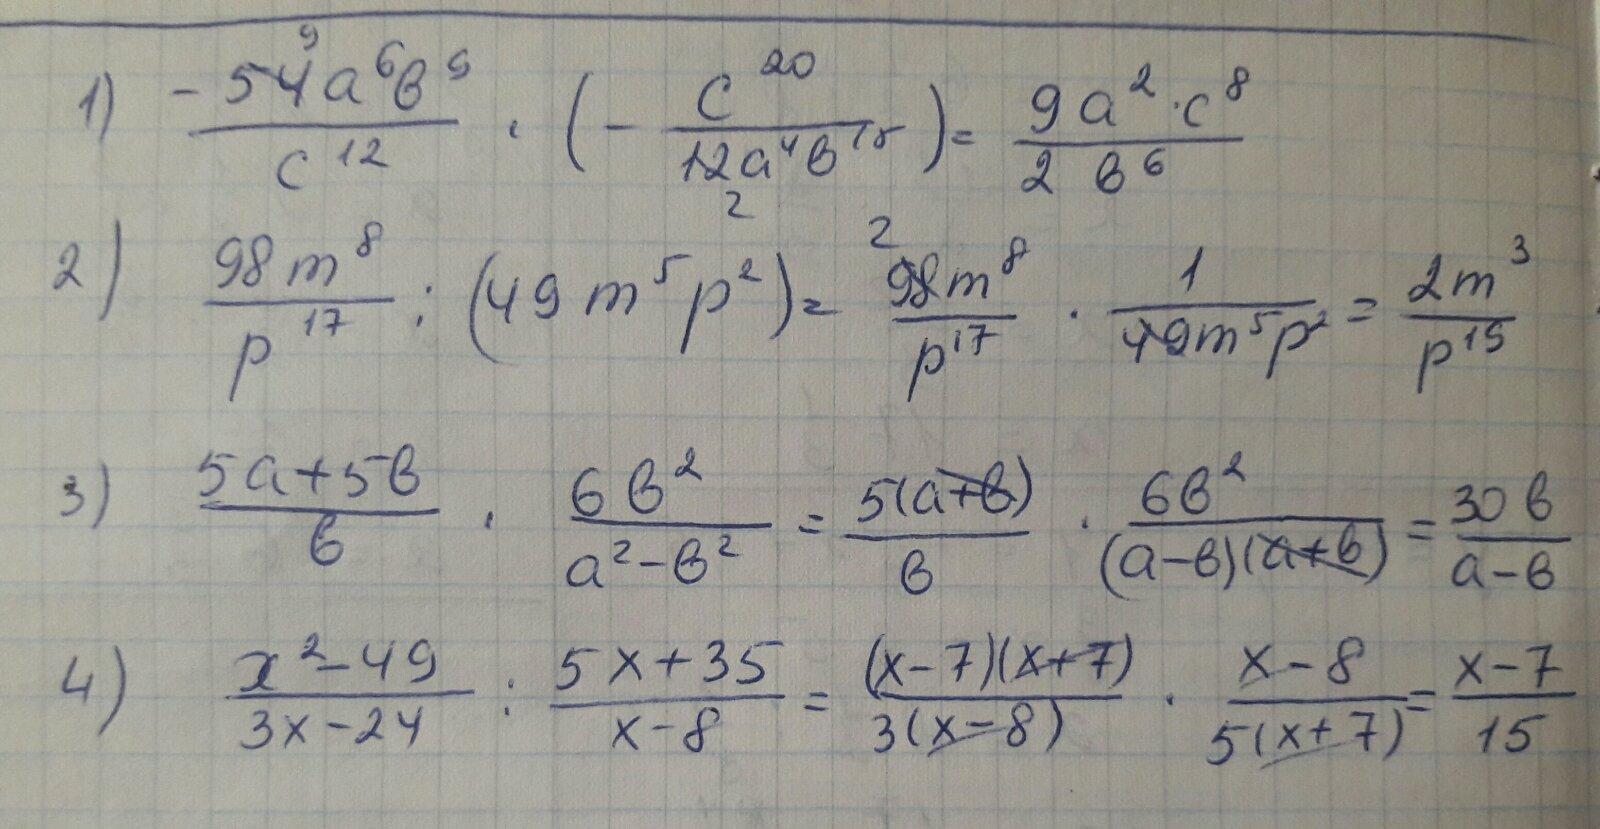 1) -54⁹a⁶b⁹/c¹² · (- c²⁰/12₂a⁴b¹⁵) = 9a²·c⁸/2b⁶
2) 98m⁸/p¹⁷ : (49m⁵p²) = ²98m⁸/p¹⁷ · 1/49m⁵p² = 2m³/p¹⁹
3) 5a+5b/b · 6b²/a²-b² = 5(a+b)/b · 6b²/(a-b)(a+b) = 30b/a-b
4) x²-49/3x-24 : 5x+35/x-8 = (x-7)(x+7)/3(x-8) · x-8/5(x+7) = x-7/15